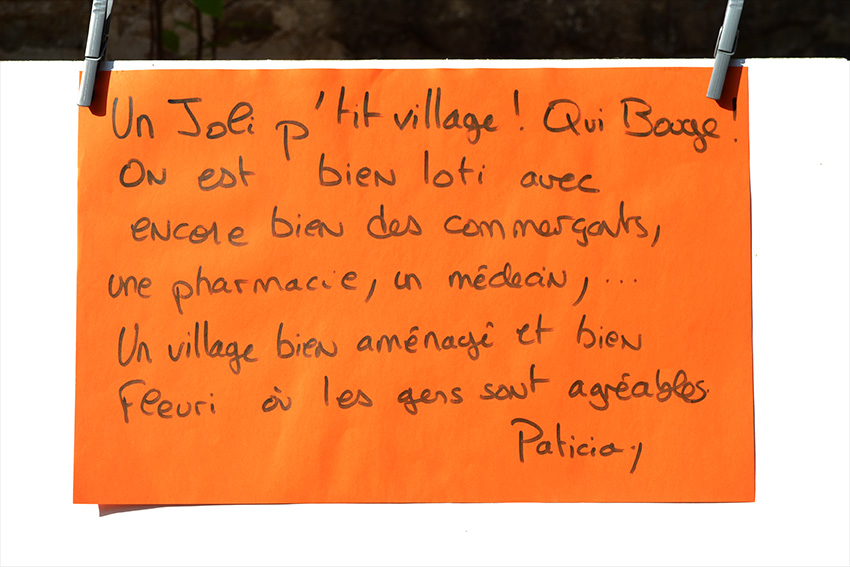 Un Joli p'tit village ! Qui Bouge !
On est bien loti avec
encore bien des commerçants,
une pharmacie, un médecin, ...
Un village bien aménagé et bien
Fleuri où les gens sont agréables.
Paticia,